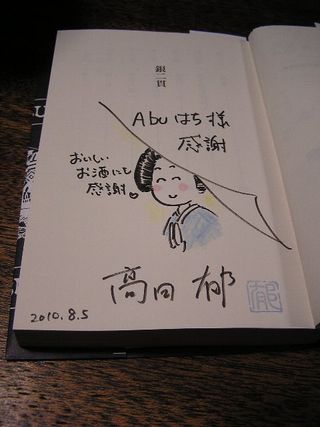 銀二貫
Abu はち 様
感謝
おいしい
お酒にも
感謝
高田 郁
郁
2010.8.5